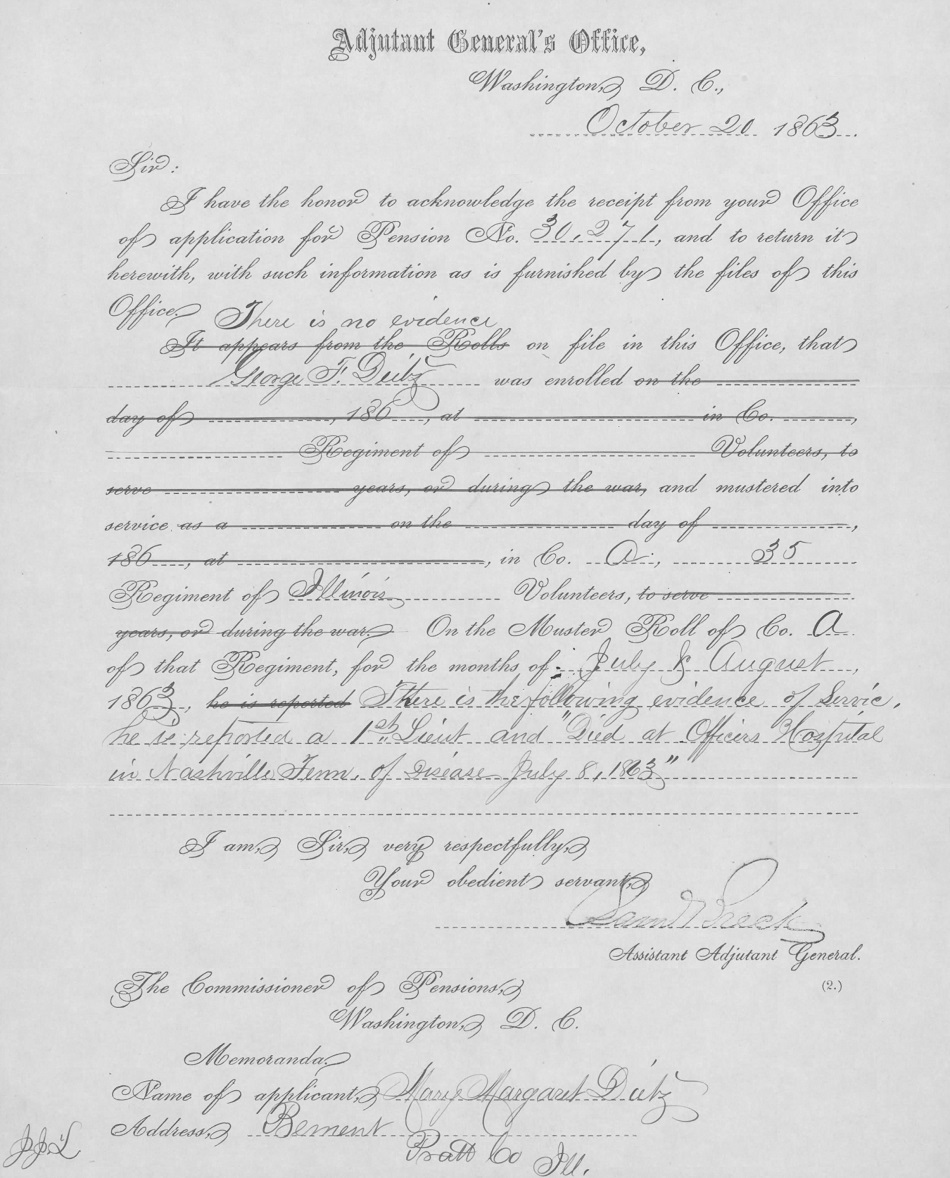 Adjutant General's Office,
Washington, D. C.,
October 20 1863.
Sir:
I have the honor to acknowledge the receipt from your Office
of application for Pension No. 30,271, and to return it
herewith, with such information as is furnished by the files of this
Office.
There is no evidence
It appears from the Rolls on file in this Office, that
George F. Deitz was enrolled on the
day of , 186 , at in Co. ,
Regiment of Volunteers, to
serve years, or during the war, and mustered into
service as a on the day of ,
186 , at , in Co. A , 35
Regiment of Illinois Volunteers, to serve
years, or during the war. On the Muster Roll of Co. A
of that Regiment, for the months of July & August ,
1863, he is reported There is the following evidence of Servic,
he is reported a 1st Lieut and "Died at Officers Hospital
in Nashville Tenn. of Disease July 8, 1863"
I am, Sir, very respectfully,
Your obedient servant,
Saml Breck
Assistant Adjutant General.
The Commissioner of Pensions,
(2.)
Washington, D. C.
Memoranda,
Name of applicant, Mary Margaret Deitz
Address, Bement
Piatt Co Ill.